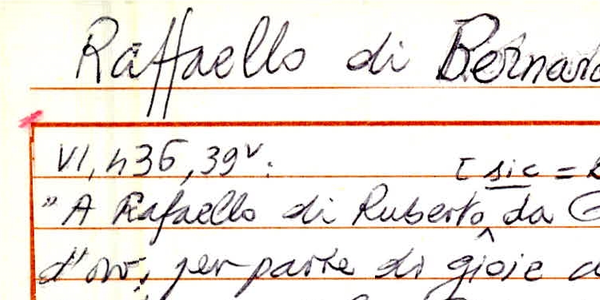 Raffaello di Bernard
VI, n36, 39v.
[sic =
"A Rafaello di Ruberto da G
d'oro, per parte di gioie d